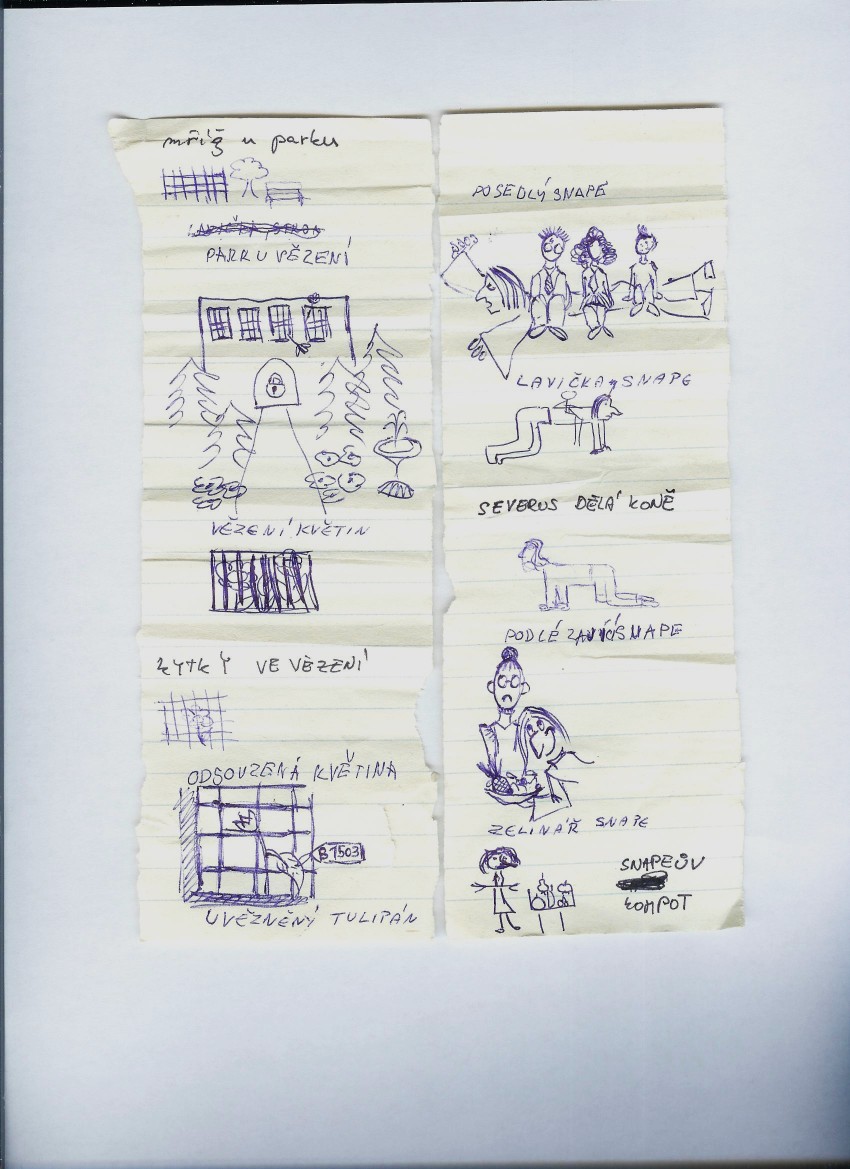 mříž u parku
PARK U VĚZENÍ
VĚZENÍ KVĚTIN
KYTKY VE VĚZENÍ
ODSOUZENÁ KVĚTINA
B 1503
UVĚZNĚNÝ TULIPÁN
POSEDLÝ SNAPE
LAVIČKA SNAPE
SEVERUS DĚLÁ KONĚ
PODLÉZAVÍ SNAPE
ZELINÁŘ SNAPE
SNAPEŮV
KOMPOT